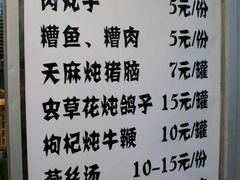 肉丸子 5元/份
糟鱼、糟肉 5元/份
天麻炖猪脑 7元/罐
虫草花炖鸽子 15元/罐
枸杞炖牛鞭 10元/罐
丝汤 10-15元/份